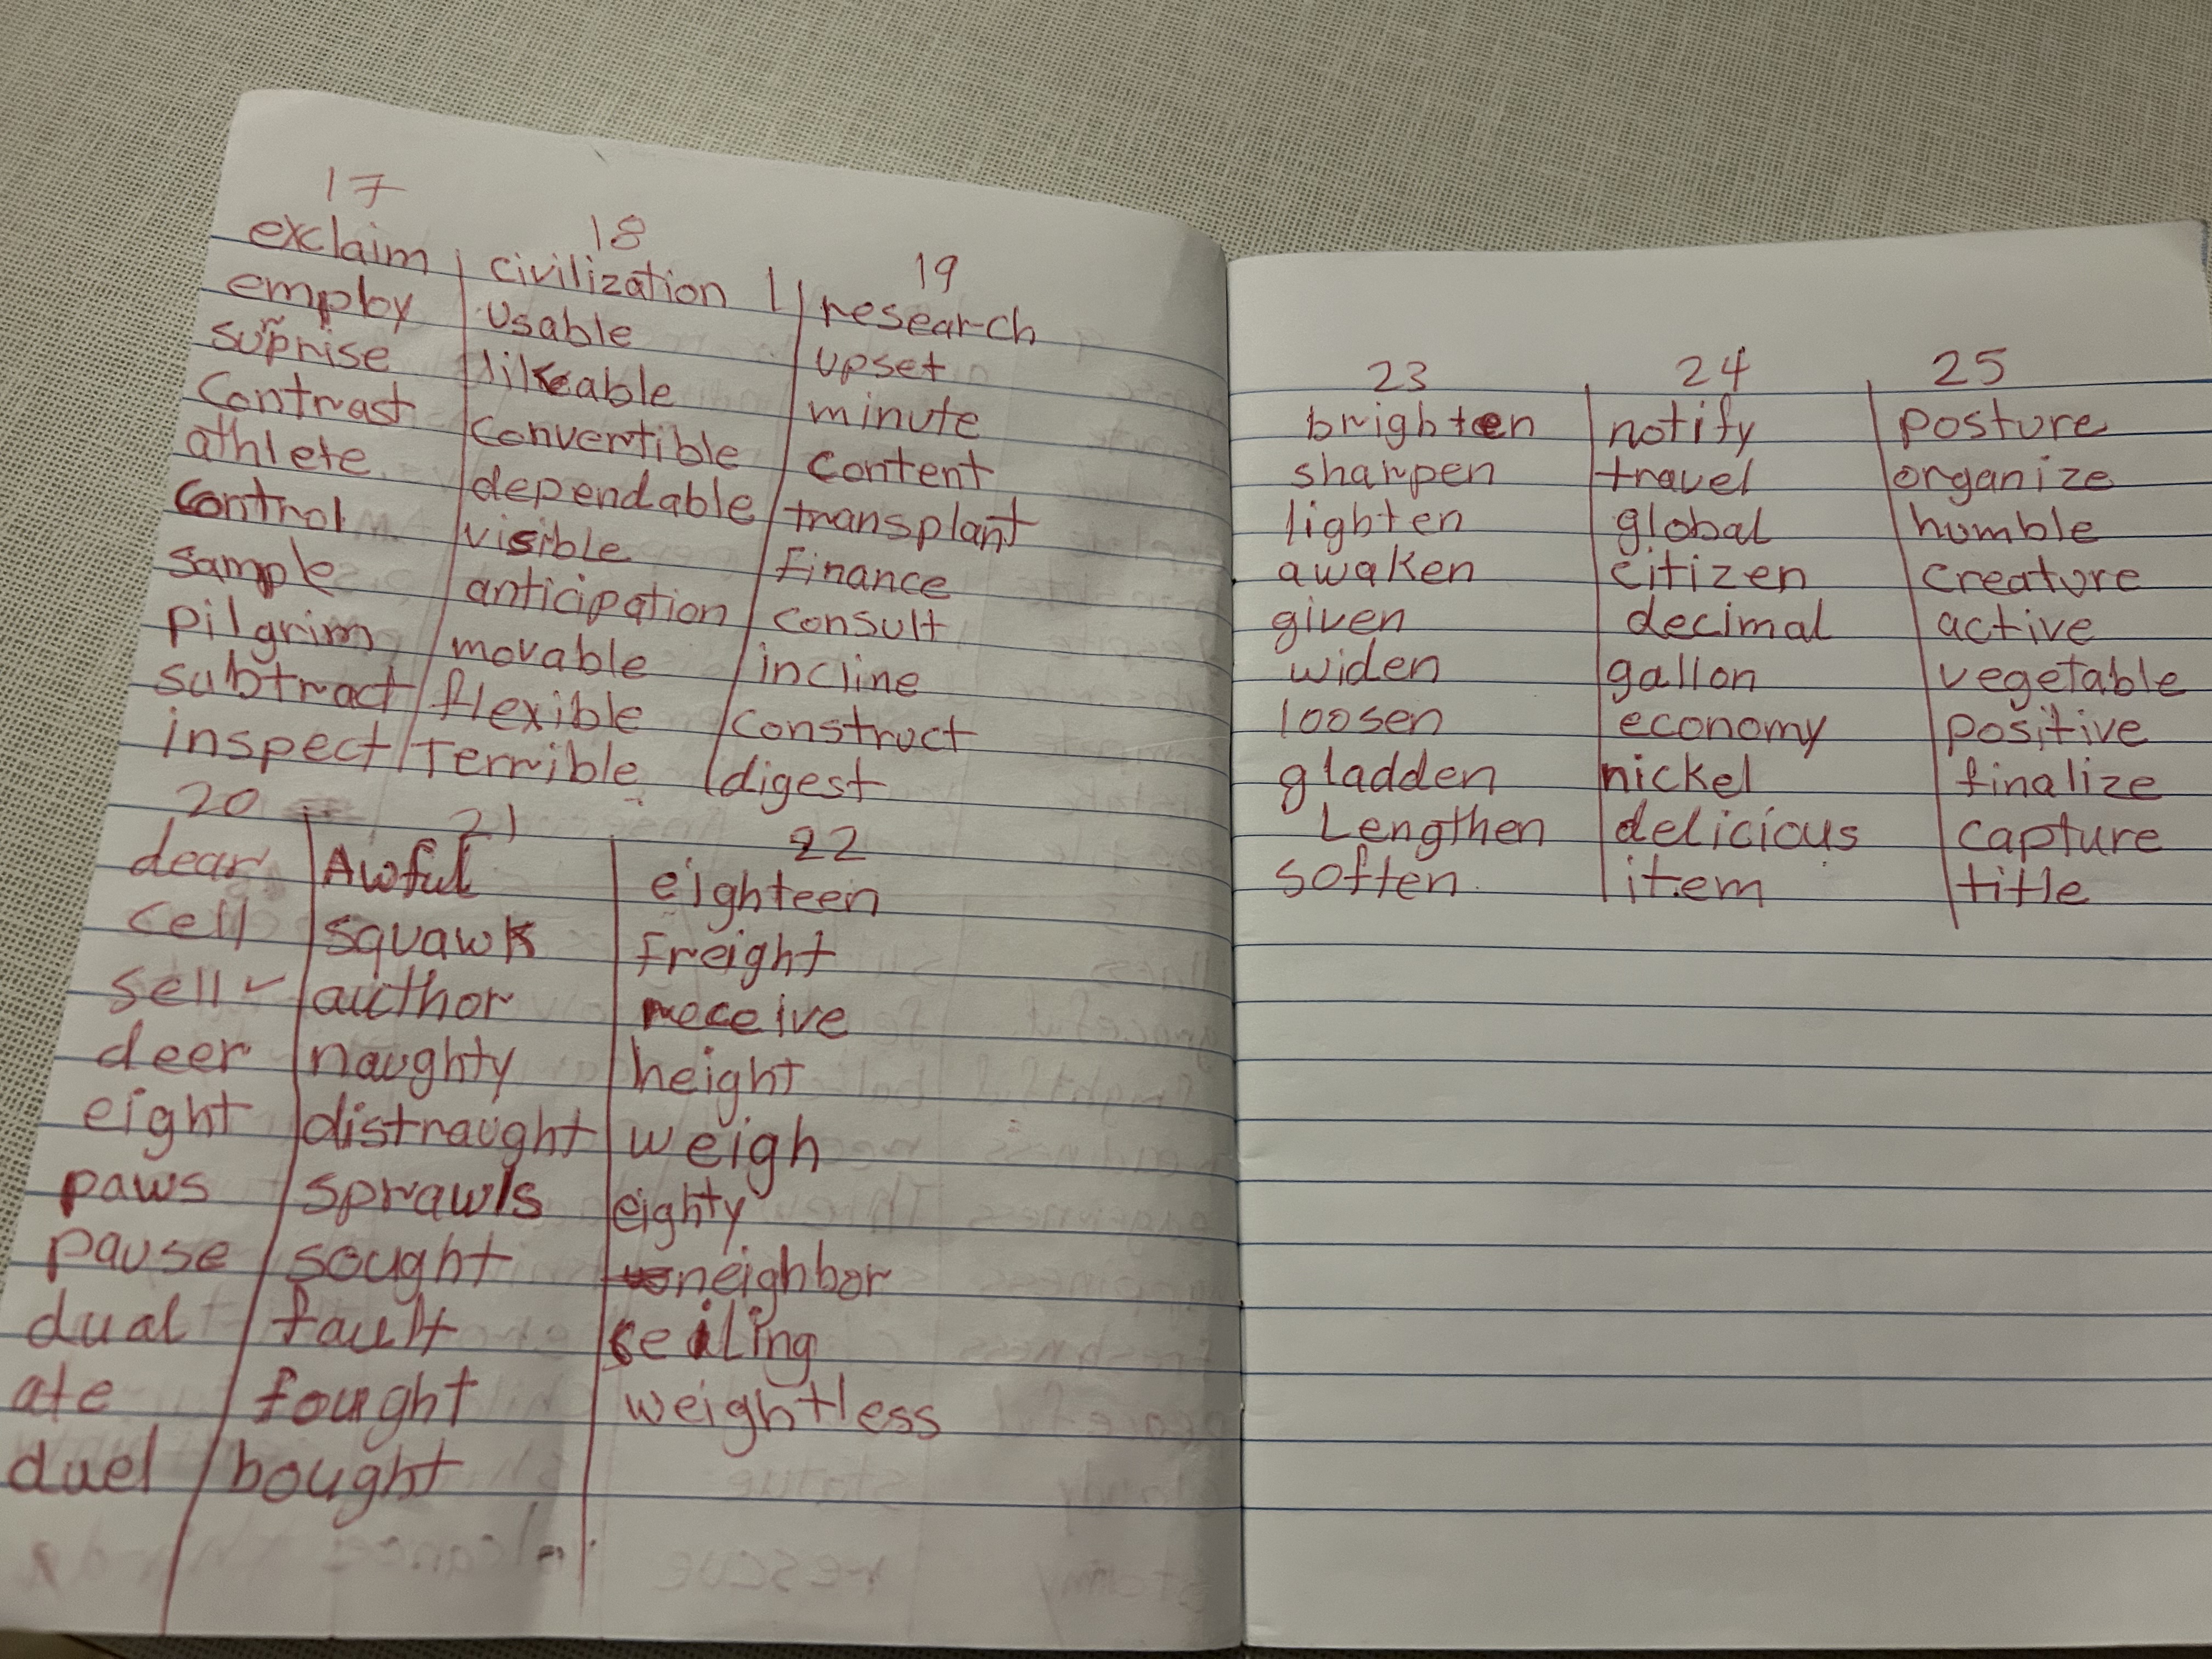 17 18 19
exclaim civilization research
employ usable upset
surprise likeable minute
contrast convertible content
athlete dependable transplant
control visible finance
sample anticipation consult
pilgrim movable incline
subtract flexible construct
inspect Terrible digest
20 21 22
dear Awful eighteen
cell squawk freight
sell author receive
deer naughty height
eight distraught weigh
paws sprawls eighty
pause sought neighbor
dual fault ceiling
ate fought weightless
duel bought
23 24 25
brighten notify posture
sharpen travel organize
lighten global humble
awaken citizen creature
given decimal active
widen gallon vegetable
loosen economy positive
gladden nickel finalize
Lengthen delicious capture
soften item title